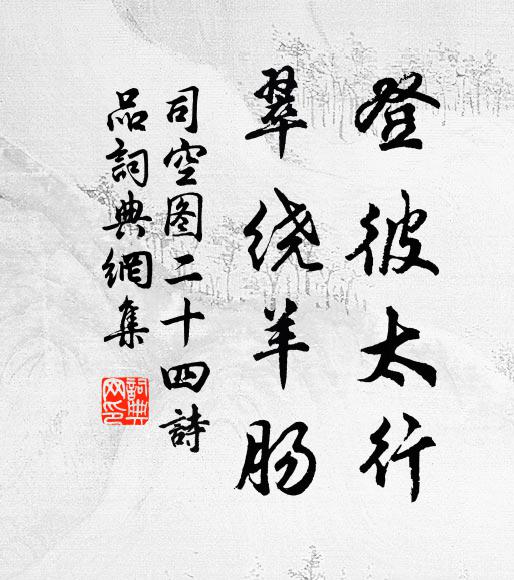 登彼太行
翠绕羊肠
司空图二十四詩
品詞典網集
詞典
网印